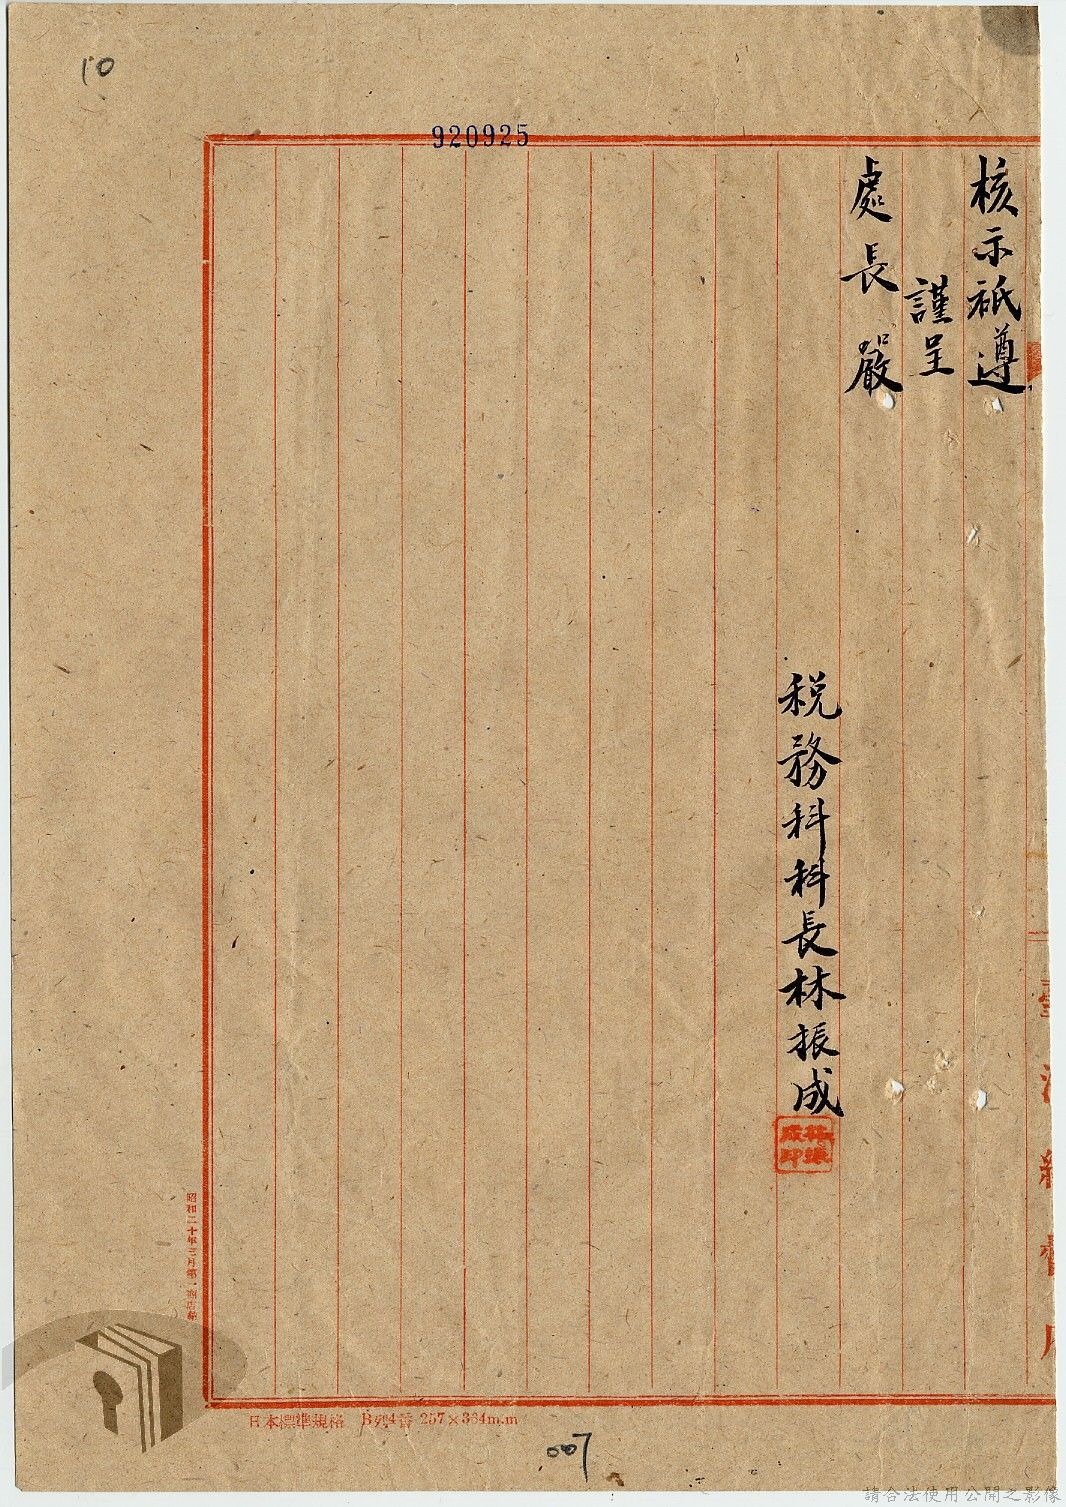 10
920925
核示祇遵
謹呈
處長嚴
稅務科科長林振成
林振成印
昭和二十年三月第一商店納
日本標準規格 B列4番 257×364m.m
007
請合法使用公開之影像